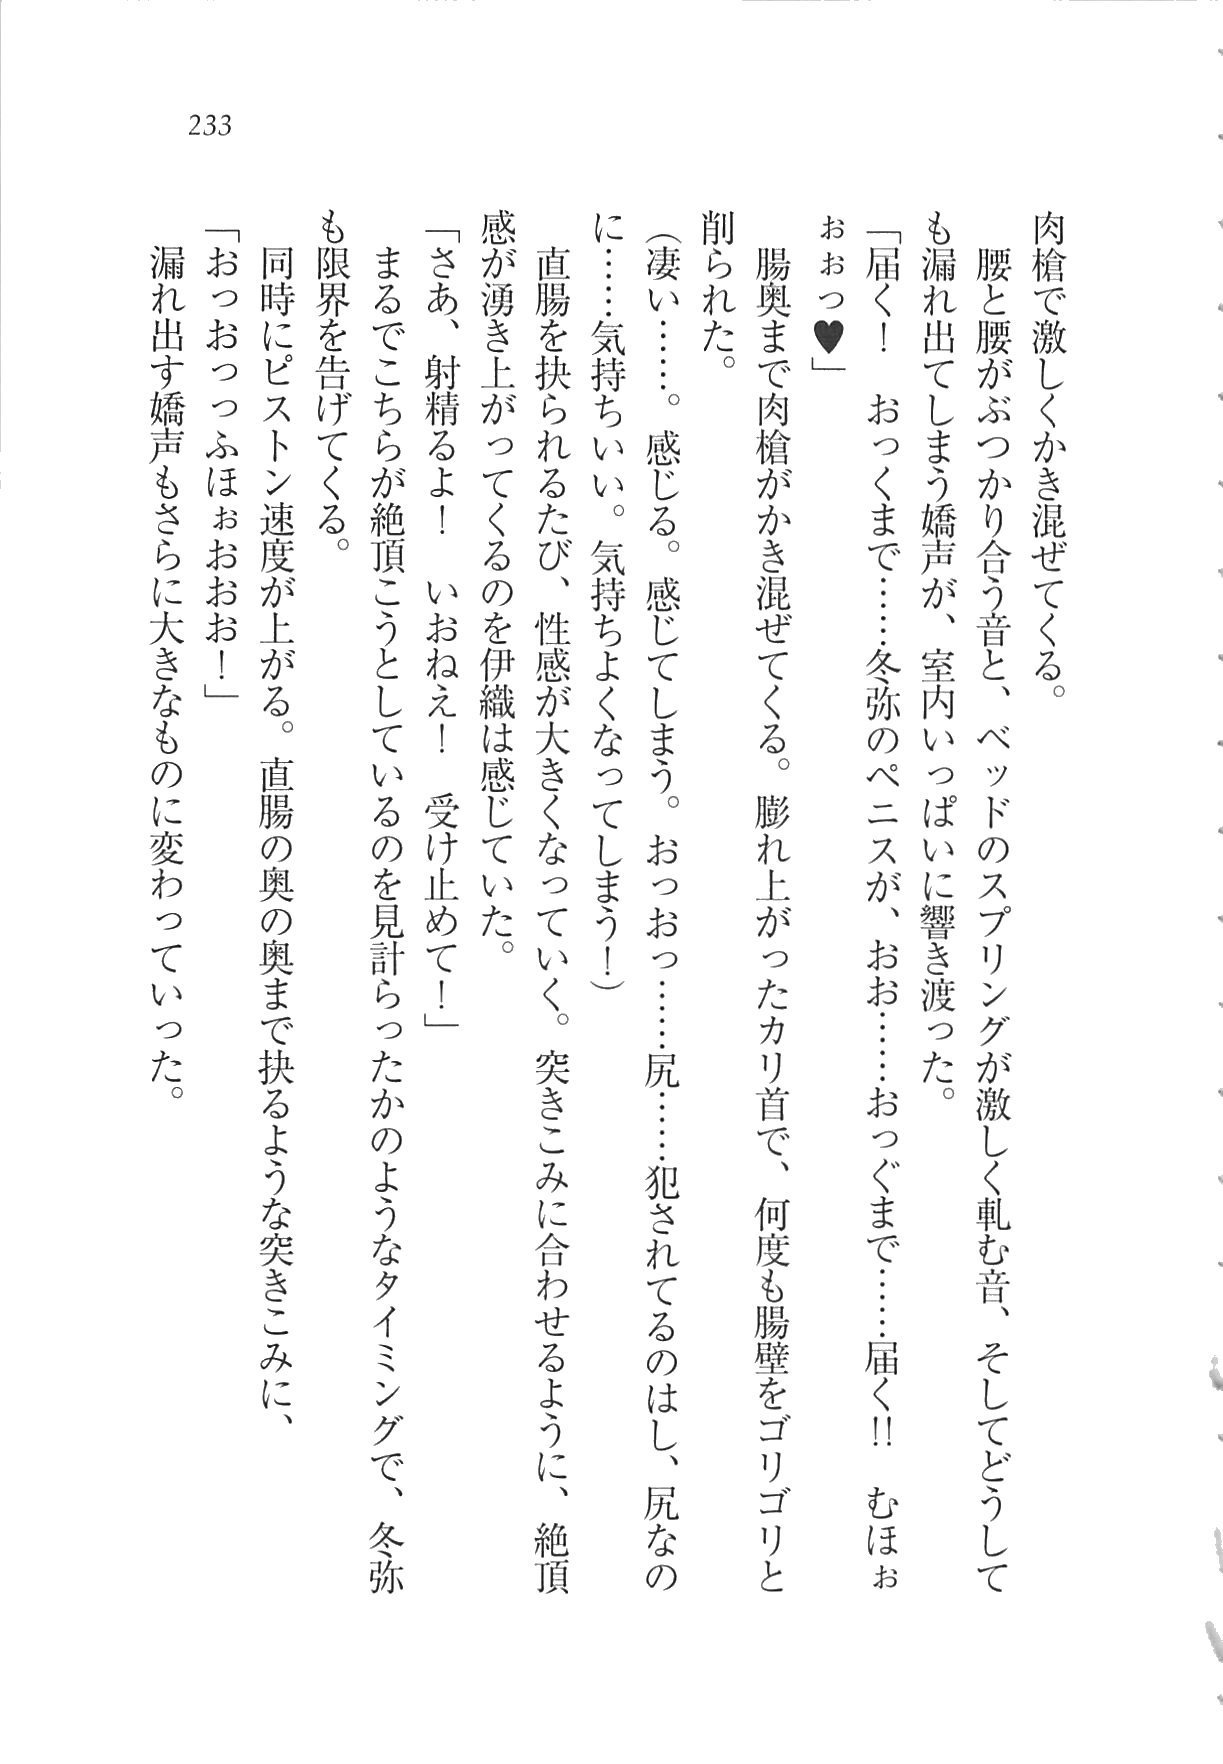 233
肉槍で激しくかき混ぜてくる。
腰と腰がぶつかり合う音と、ベッドのスプリングが激しく軋む音、そしてどうして
も漏れ出てしまう嬌声が、室内いっぱいに響き渡った。
「届く！　おっくまで……冬弥のペニスが、おお……おっぐまで……届く!!　むほぉ
ぉぉっ♥」
腸奥まで肉槍がかき混ぜてくる。膨れ上がったカリ首で、何度も腸壁をゴリゴリと
削られた。
（凄い……。感じる。感じてしまう。おっおっ……尻……犯されてるのはし、尻なの
に……気持ちいい。気持ちよくなってしまう！）
直腸を抉られるたび、性感が大きくなっていく。突きこみに合わせるように、絶頂
感が湧き上がってくるのを伊織は感じていた。
「さあ、射精るよ！　いおねえ！　受け止めて！」
まるでこちらが絶頂こうとしているのを見計らったかのようなタイミングで、冬弥
も限界を告げてくる。
同時にピストン速度が上がる。直腸の奥の奥まで抉るような突きこみに、
「おっおっっふほぉおおお！」
漏れ出す嬌声もさらに大きなものに変わっていった。